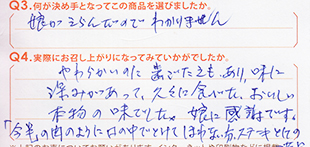 Q3.何が決め手となってこの商品を選びましたか。
娘がえらんだのでわかりません
Q4.実際にお召し上がりになってみていかがでしたか。
やわらかいのに歯ごたえも、あり、味に
深みがあって、久々に食べた、おいしい
本物の味でした。娘に感謝です。
「今半の肉のように口の中でとけてはわない分、ステーキとしての